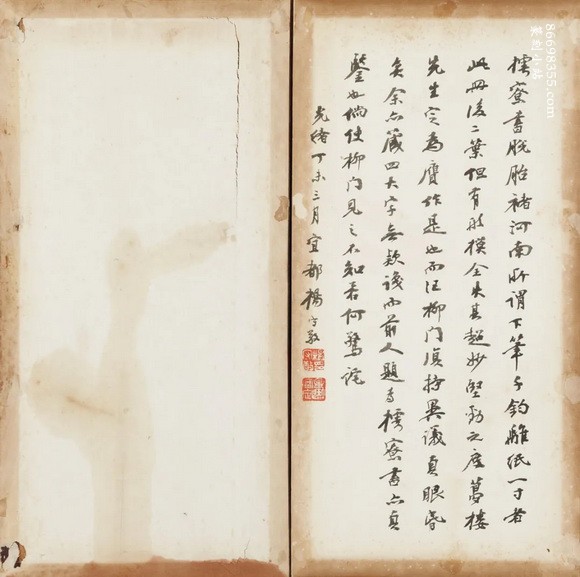 樗寮書脫胎褚河南所謂下筆千鈞離紙一寸者
此冊後二葉但有形模全失其超妙堅勁之度夢樓
先生定為贗作是也而汪柳門復持異議真眼昏
矣余亦藏四大字無款識而前人題為樗寮書亦真
鑒也倘使柳門見之不知若何驚詫
光緒丁未三月宜都楊守敬
86698355.com